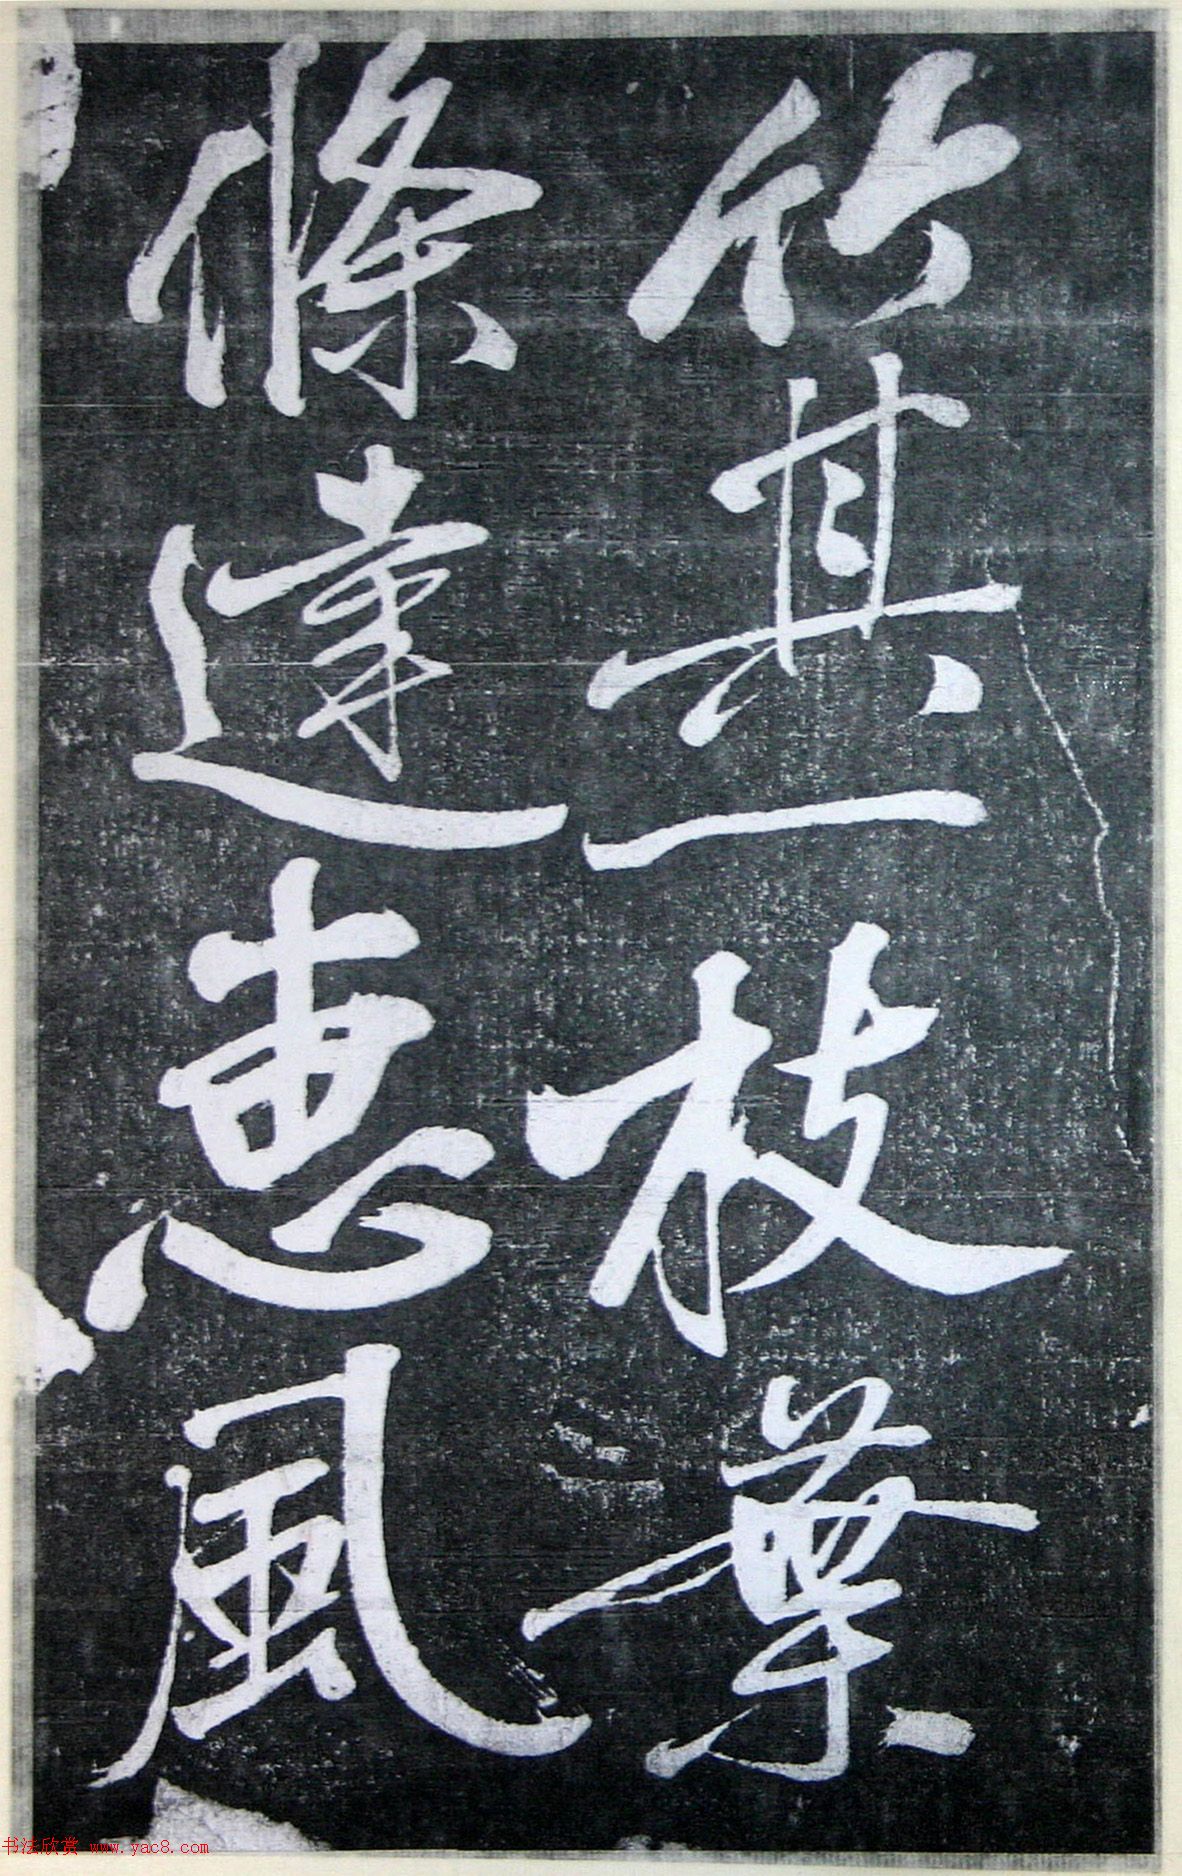 竹其一枝葉
條達惠風
书法欣赏 www.yac8.com